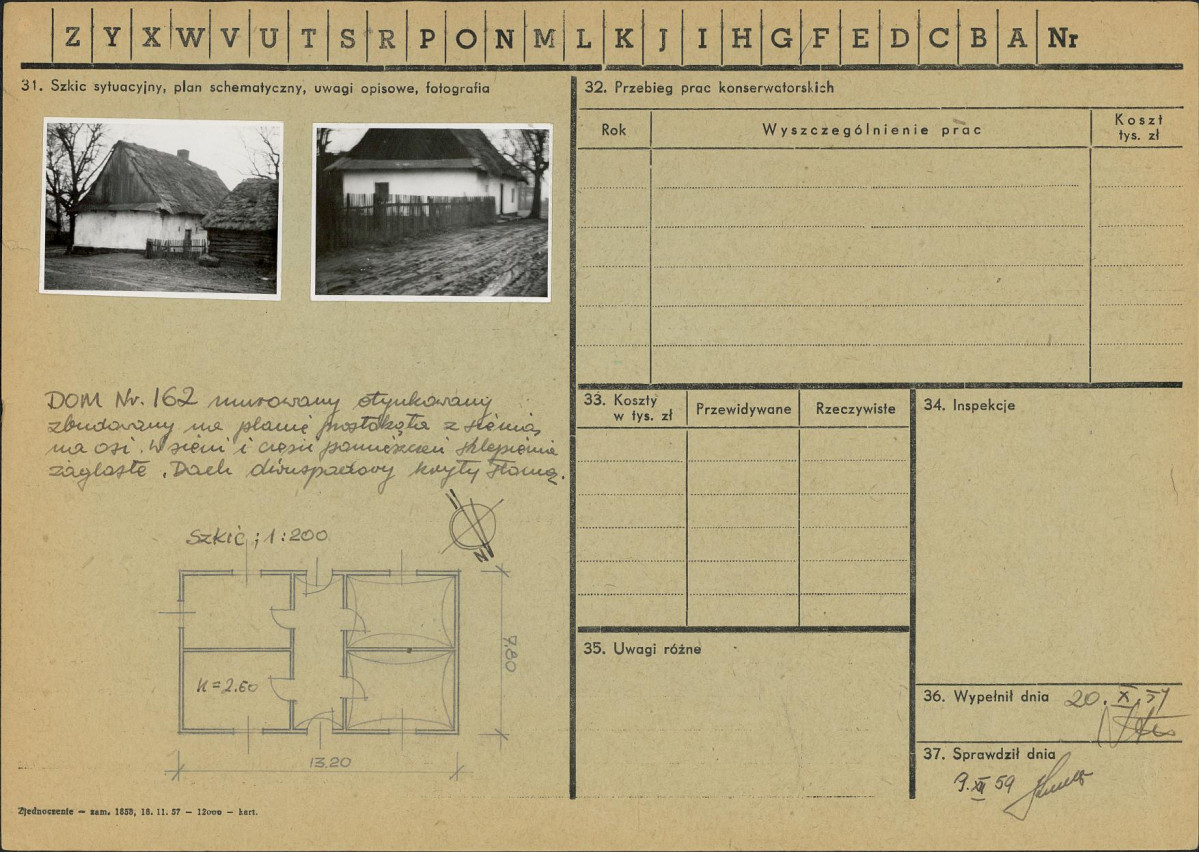 Z Y X W V U T S R P O N M L K J I H G F E D C B A Nr
31. Szkic sytuacyjny, plan schematyczny, uwagi opisowe, fotografia
DOM Nr. 162 murowany otynkowany
zbudowany na planie prostokąta z sienią
na osi. W sieni i części pomieszczeń sklepienia
zaglaste. Dach dwuspadowy kryty słomą.
Szkic; 1:200
N
H=2.60
7.80
13.20
Zjednoczenie — zam. 1658, 18. 11. 57 — 12000 — kart.
32. Przebieg prac konserwatorskich
Rok
Wyszczególnienie prac
Koszt
tys. zł
33. Koszty
w tys. zł
Przewidywane
Rzeczywiste
34. Inspekcje
35. Uwagi różne
36. Wypełnił dnia 20. X. 59
37. Sprawdził dnia
9. XII 59